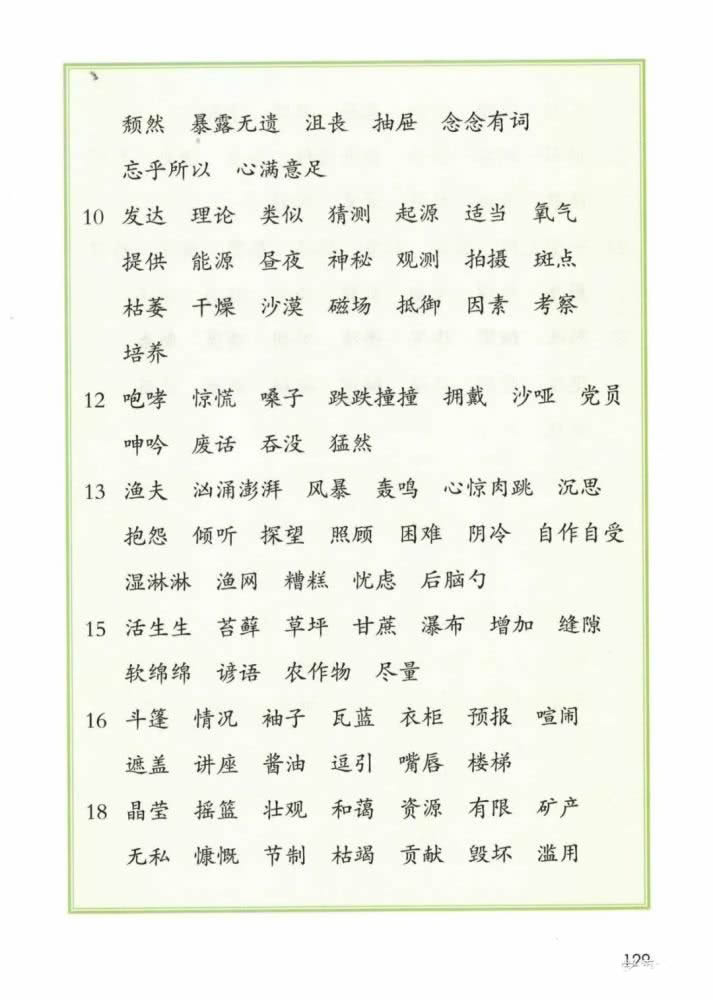 颓然 暴露无遗 沮丧 抽屉 念念有词
忘乎所以 心满意足
10 发达 理论 类似 猜测 起源 适当 氧气
提供 能源 昼夜 神秘 观测 拍摄 斑点
枯萎 干燥 沙漠 磁场 抵御 因素 考察
培养
12 咆哮 惊慌 嗓子 跌跌撞撞 拥戴 沙哑 党员
呻吟 废话 吞没 猛然
13 渔夫 汹涌澎湃 风暴 轰鸣 心惊肉跳 沉思
抱怨 倾听 探望 照顾 困难 阴冷 自作自受
湿淋淋 渔网 糟糕 忧虑 后脑勺
15 活生生 苔藓 草坪 甘蔗 瀑布 增加 缝隙
软绵绵 谚语 农作物 尽量
16 斗篷 情况 袖子 瓦蓝 衣柜 预报 喧闹
遮盖 讲座 酱油 逗引 嘴唇 楼梯
18 晶莹 摇篮 壮观 和蔼 资源 有限 矿产
无私 慷慨 节制 枯竭 贡献 毁坏 滥用
129